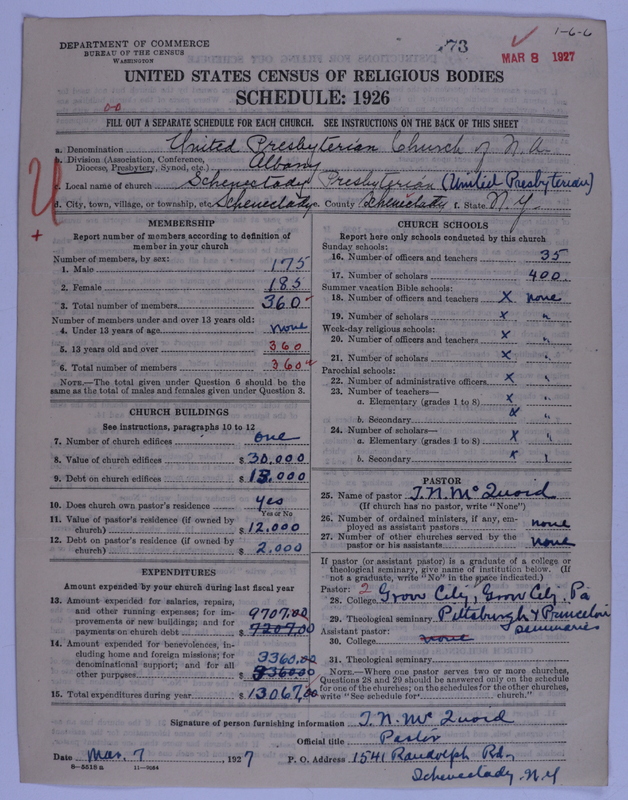 1-6-6
DEPARTMENT OF COMMERCE
BUREAU OF THE CENSUS
WASHINGTON
73
MAR 8 1927
UNITED STATES CENSUS OF RELIGIOUS BODIES
SCHEDULE: 1926
FILL OUT A SEPARATE SCHEDULE FOR EACH CHURCH. SEE INSTRUCTIONS ON THE BACK OF THIS SHEET
a. Denomination United Presbyterian Church of N. A.
b. Division (Association, Conference, Diocese, Presbytery, Synod, etc.) Albany
c. Local name of church Schenectady Presbyterian (United Presbyterian)
d. City, town, village, or township, etc. Schenectady e. County Schenectady f. State N.Y.
MEMBERSHIP
Report number of members according to definition of
member in your church
Number of members, by sex:
1. Male 175
2. Female 185
3. Total number of members 360
Number of members under and over 13 years old:
4. Under 13 years of age none
5. 13 years old and over 360
6. Total number of members 360
NOTE.—The total given under Question 6 should be the
same as the total of males and females given under Question 3.
CHURCH BUILDINGS
See instructions, paragraphs 10 to 12
7. Number of church edifices one
8. Value of church edifices $ 30,000
9. Debt on church edifices $ 13,000
10. Does church own pastor's residence yes
Yes or No
11. Value of pastor's residence (if owned by
church) $ 12,000
12. Debt on pastor's residence (if owned by
church) $ 2,000
EXPENDITURES
Amount expended by your church during last fiscal year
13. Amount expended for salaries, repairs,
and other running expenses; for im-
provements or new buildings; and for 9707.00
payments on church debt $ 7207.00
14. Amount expended for benevolences, in-
cluding home and foreign missions; for
denominational support; and for all 3360.00
other purposes $ 336000
15. Total expenditures during year $ 13067.00
CHURCH SCHOOLS
Report here only schools conducted by this church
Sunday schools:
16. Number of officers and teachers 35
17. Number of scholars 400
Summer vacation Bible schools:
18. Number of officers and teachers x none
19. Number of scholars x "
Week-day religious schools:
20. Number of officers and teachers x "
21. Number of scholars x "
Parochial schools:
22. Number of administrative officers x "
23. Number of teachers—
a. Elementary (grades 1 to 8) x "
b. Secondary x "
24. Number of scholars—
a. Elementary (grades 1 to 8) x "
b. Secondary x "
PASTOR
25. Name of pastor T. N. McQuoid
(If church has no pastor, write "None")
26. Number of ordained ministers, if any, em-
ployed as assistant pastors none
27. Number of other churches served by the
pastor or his assistants none
If pastor (or assistant pastor) is a graduate of a college or
theological seminary, give name of institution below. (If
not a graduate, write "No" in the space indicated.)
Pastor: 2
28. College Grove City, Grove City, Pa
29. Theological seminary Pittsburgh & Princeton
Seminaries
Assistant pastor:
30. College none
31. Theological seminary
NOTE.—Where one pastor serves two or more churches,
Questions 28 and 29 should be answered only on the schedule
for one of the churches; on the schedules for the other churches,
write "See schedule for church."
Signature of person furnishing information T. N. McQuoid
Official title Pastor
Date Mar. 7, 1927 P. O. Address 1541 Randolph Rd.,
Schenectady, N.Y.
8—5518 a 11—9064